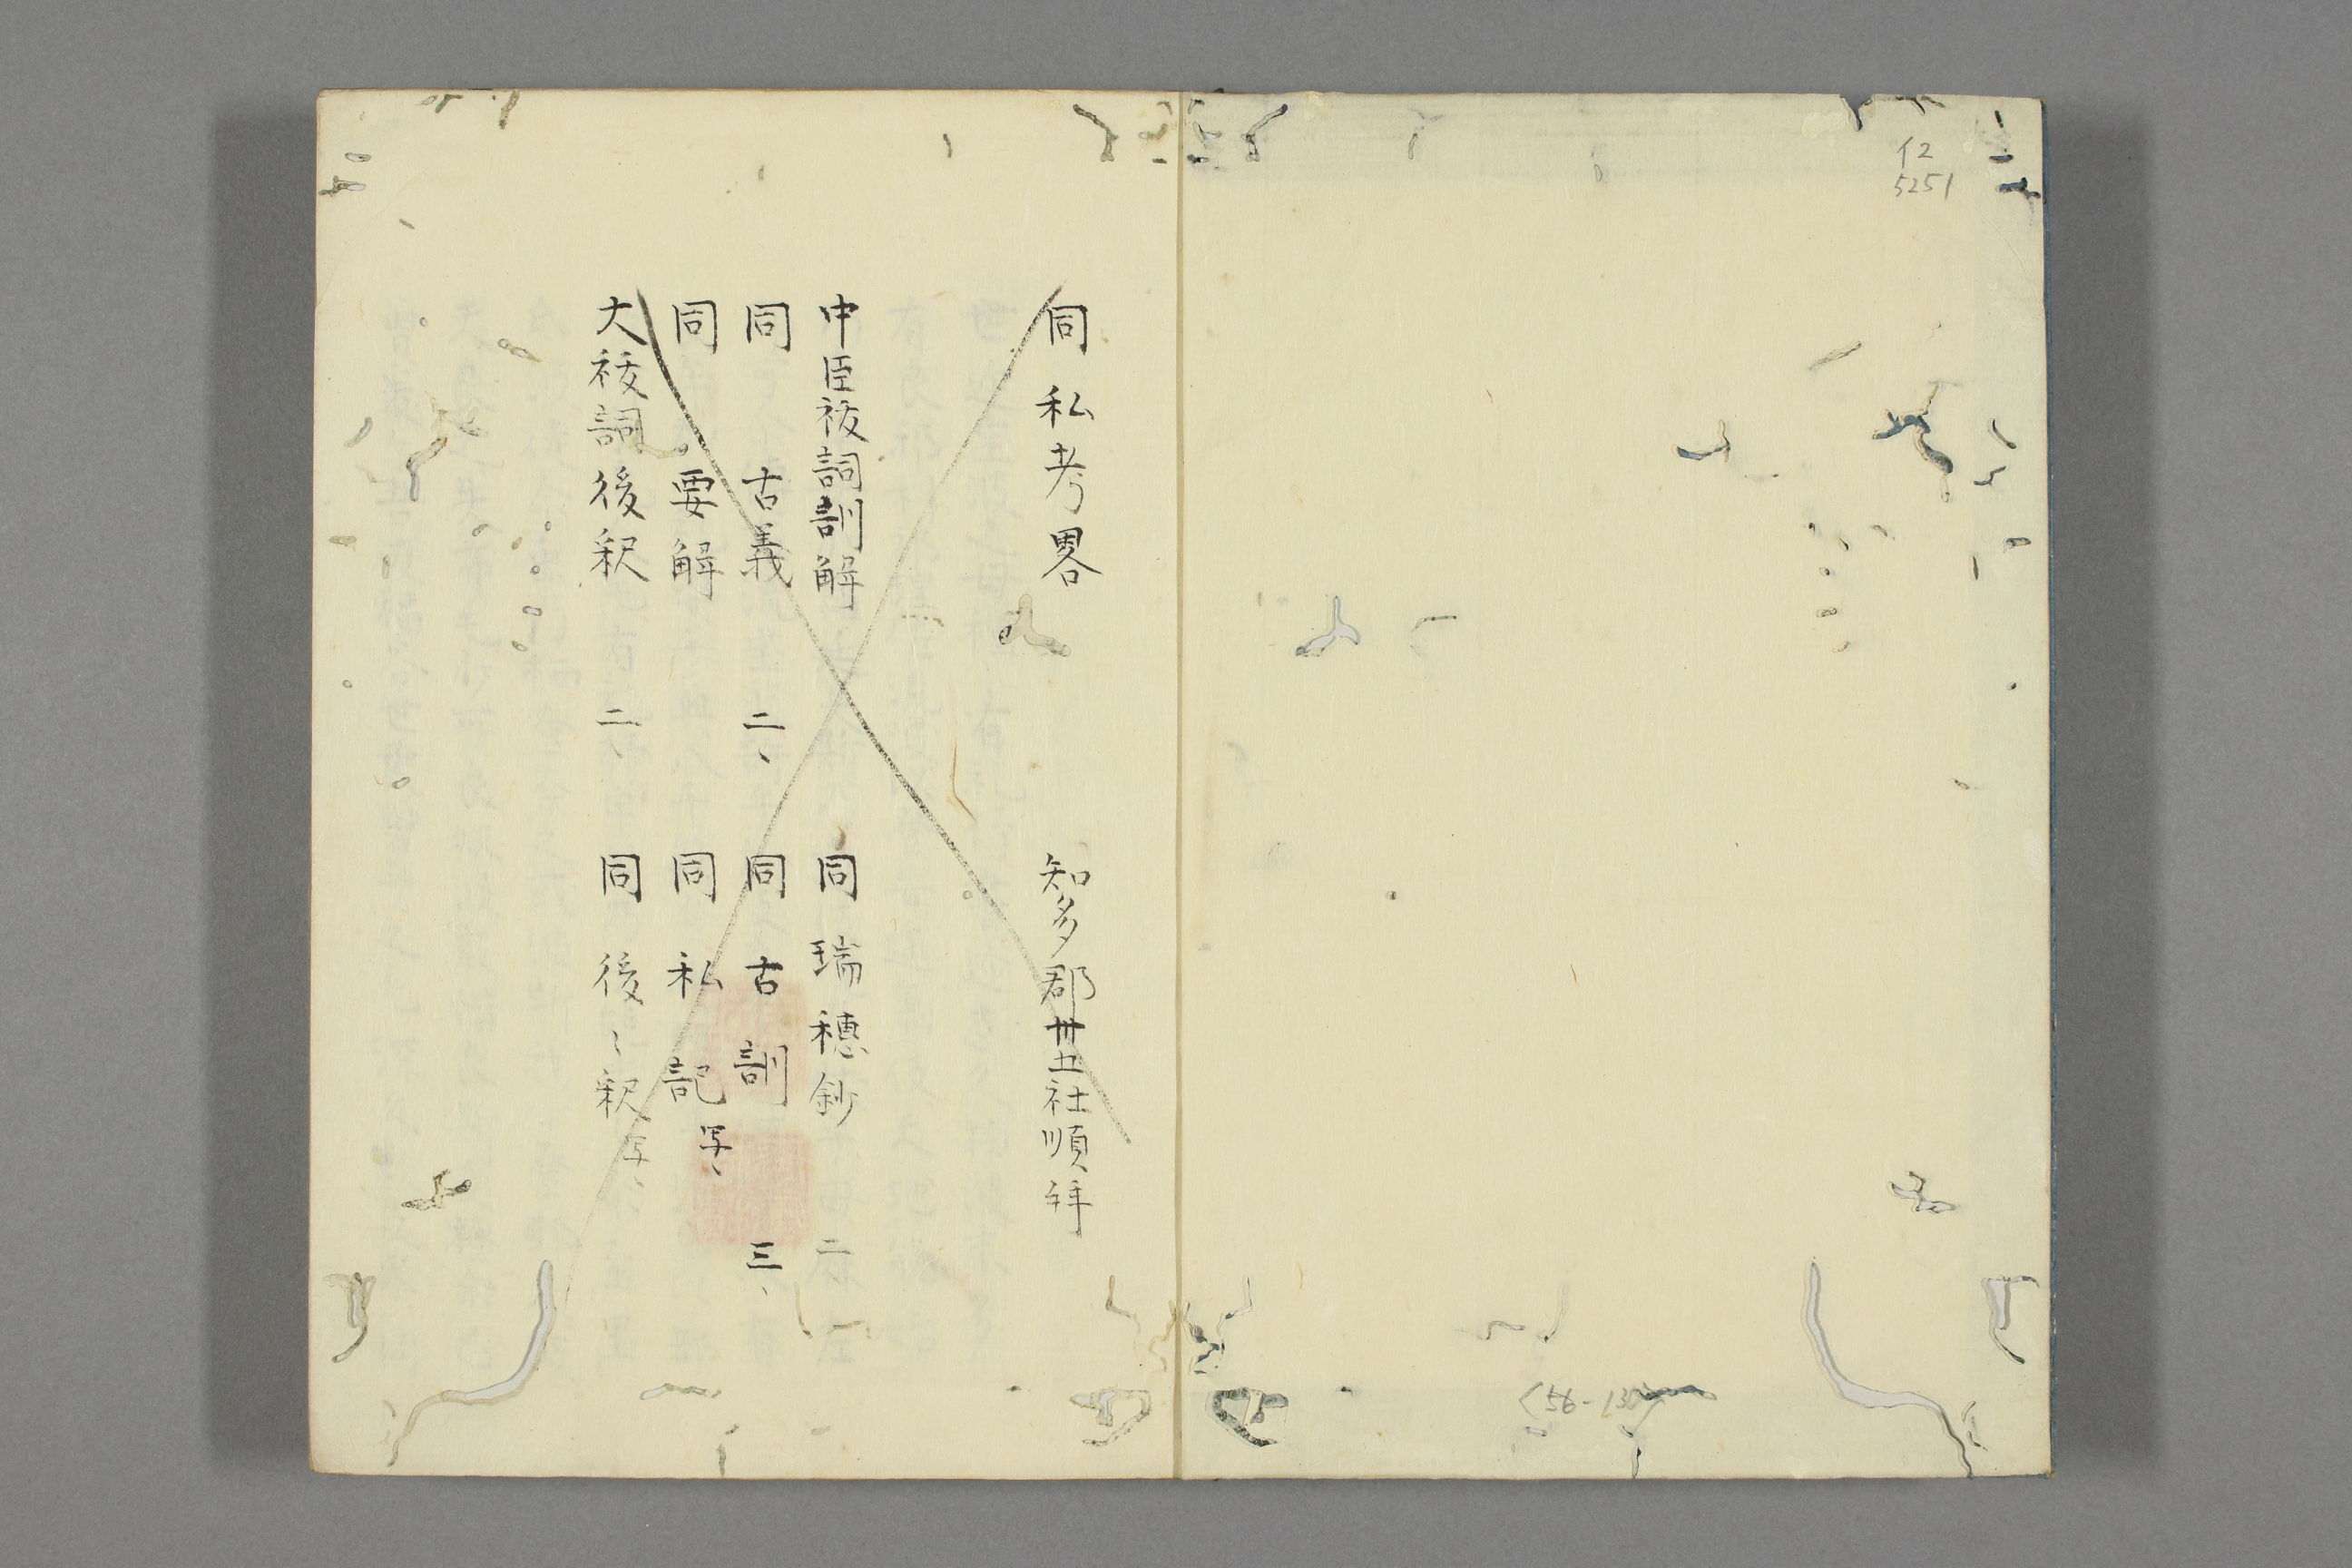 イ2
5251
同私考畧　知多郡廿五社順拜
中臣祓詞訓解　同瑞穗鈔　二
同　古義　二、　同古訓　三、
同　要解　同私記　写、
大祓詞後釈　二、　同後〻釈　写、